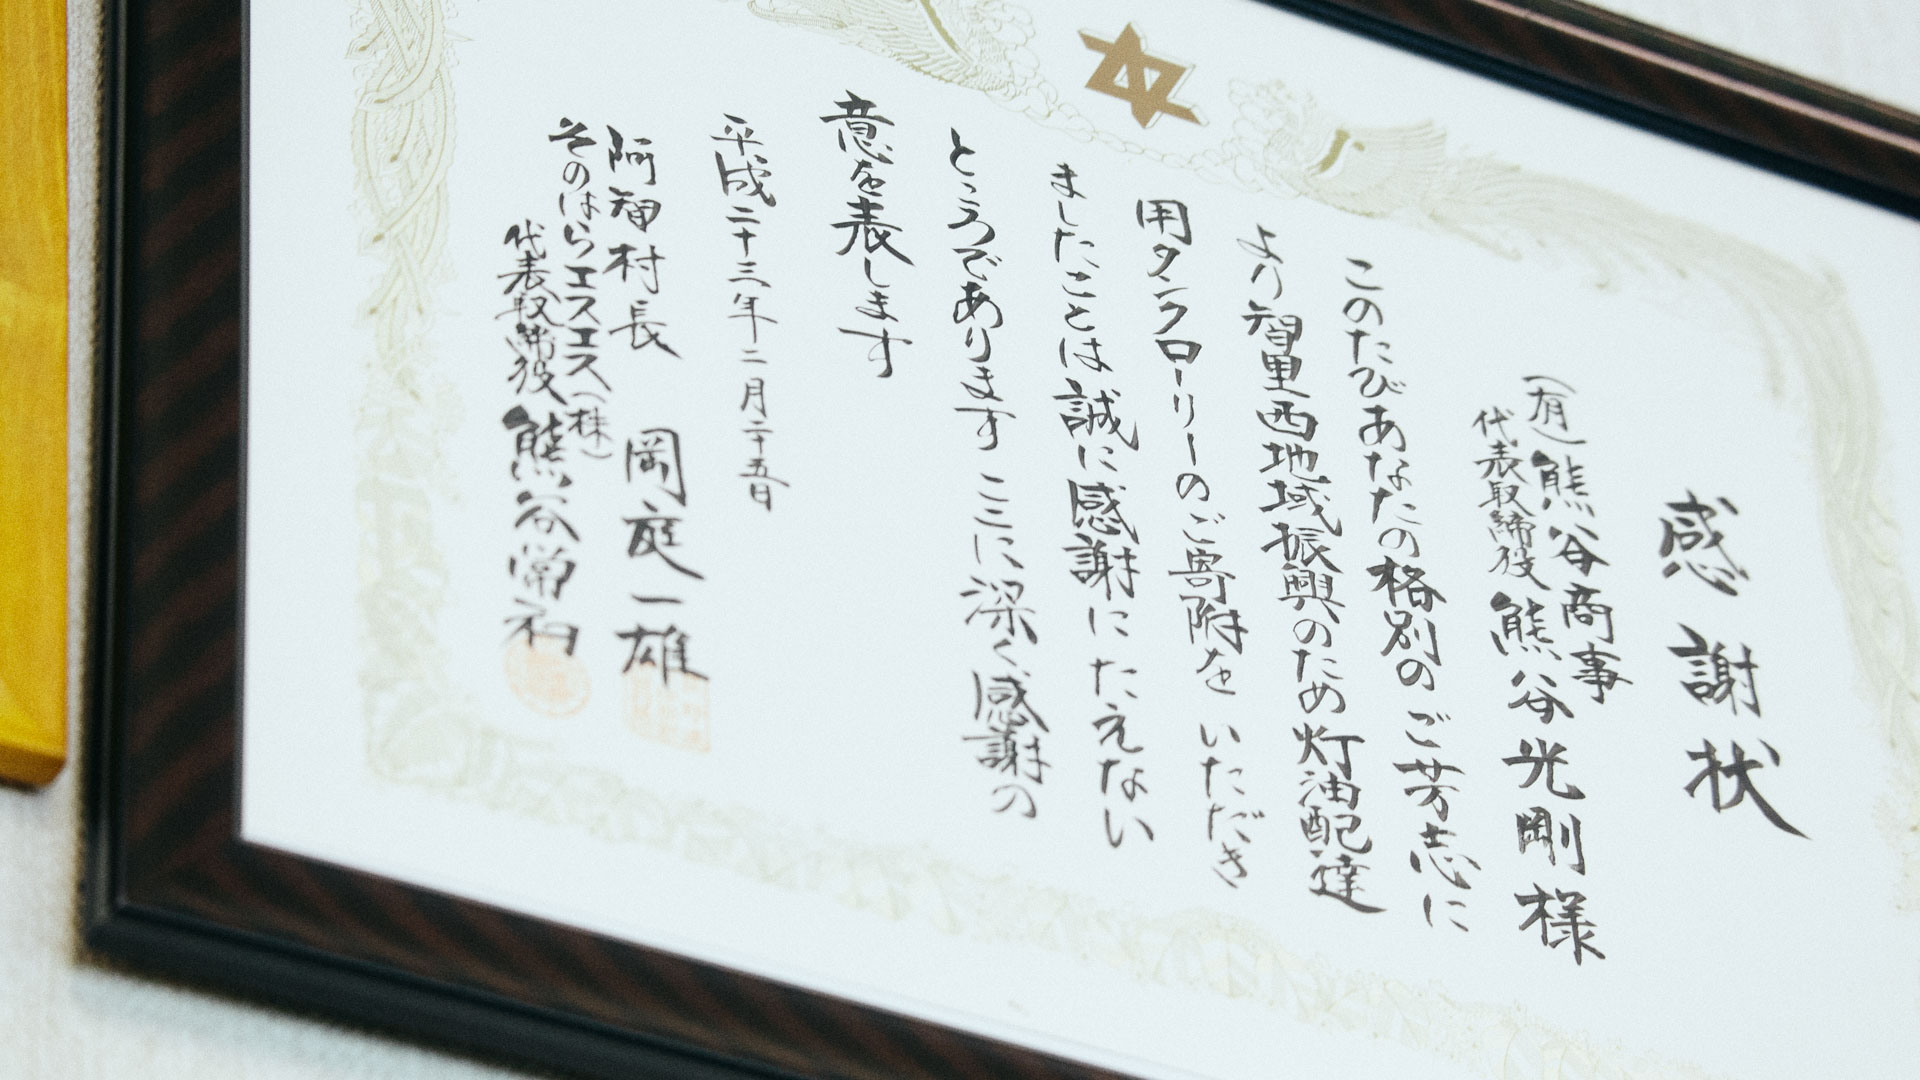 感謝状
(有)熊谷商事
代表取締役 熊谷光剛様
このたびあなたの格別のご芳志に
より智里西地域振興のため灯油配達
用タンクローリーのご寄附をいただき
ましたことは誠に感謝にたえない
ところであります ここに深く感謝の
意を表します
平成二十三年二月二十五日
阿智村長 岡庭一雄
そのはらエスエス(株)
代表取締役 熊谷